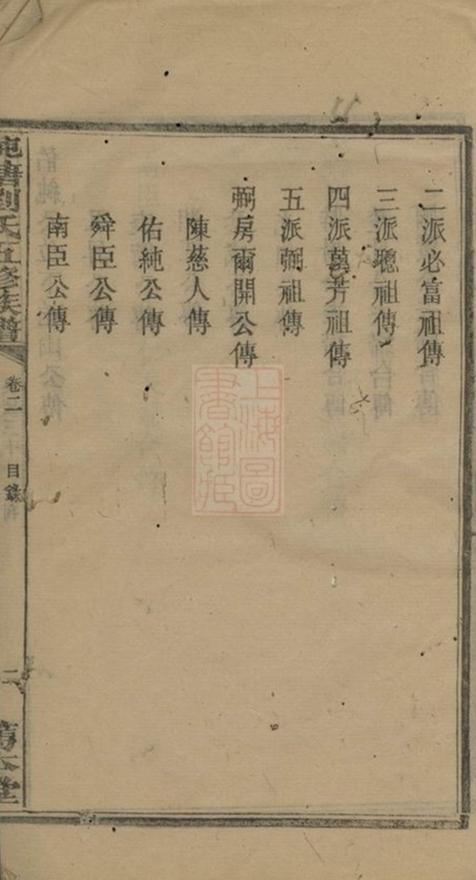 二派必富祖傳
三派聰祖傳
四派萬芳祖傳
五派弼祖傳
弼房爾開公傳
陳慈人傳
佑純公傳
舜臣公傳
南臣公傳
劉氏五修族譜
卷二
目錄
二
堂
上海圖書館藏